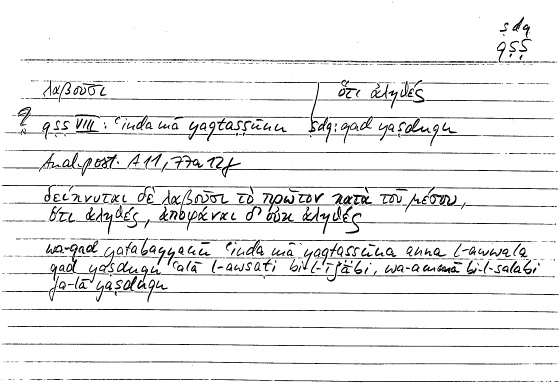 ṣdq
qṣṣ
λαβοῦσι | ὅτι ἀληθές
qṣṣ VIII: ʿinda mā yaqtaṣṣūna | ṣdq: qad yaṣduqu
Anal. post. A 11, 77a12f
δείκνυται δὲ λαβοῦσι τὸ πρῶτον κατὰ τοῦ μέσου,
ὅτι ἀληθές, ἀποφάναι δ' οὐκ ἀληθές
wa-qad yatabayyanu ʿinda mā yaqtaṣṣūna anna l-awwala
qad yaṣduqu ʿalā l-awsaṭi bi-l-īǧābi, wa-ammā bi-l-salabi
fa-lā yaṣduqu